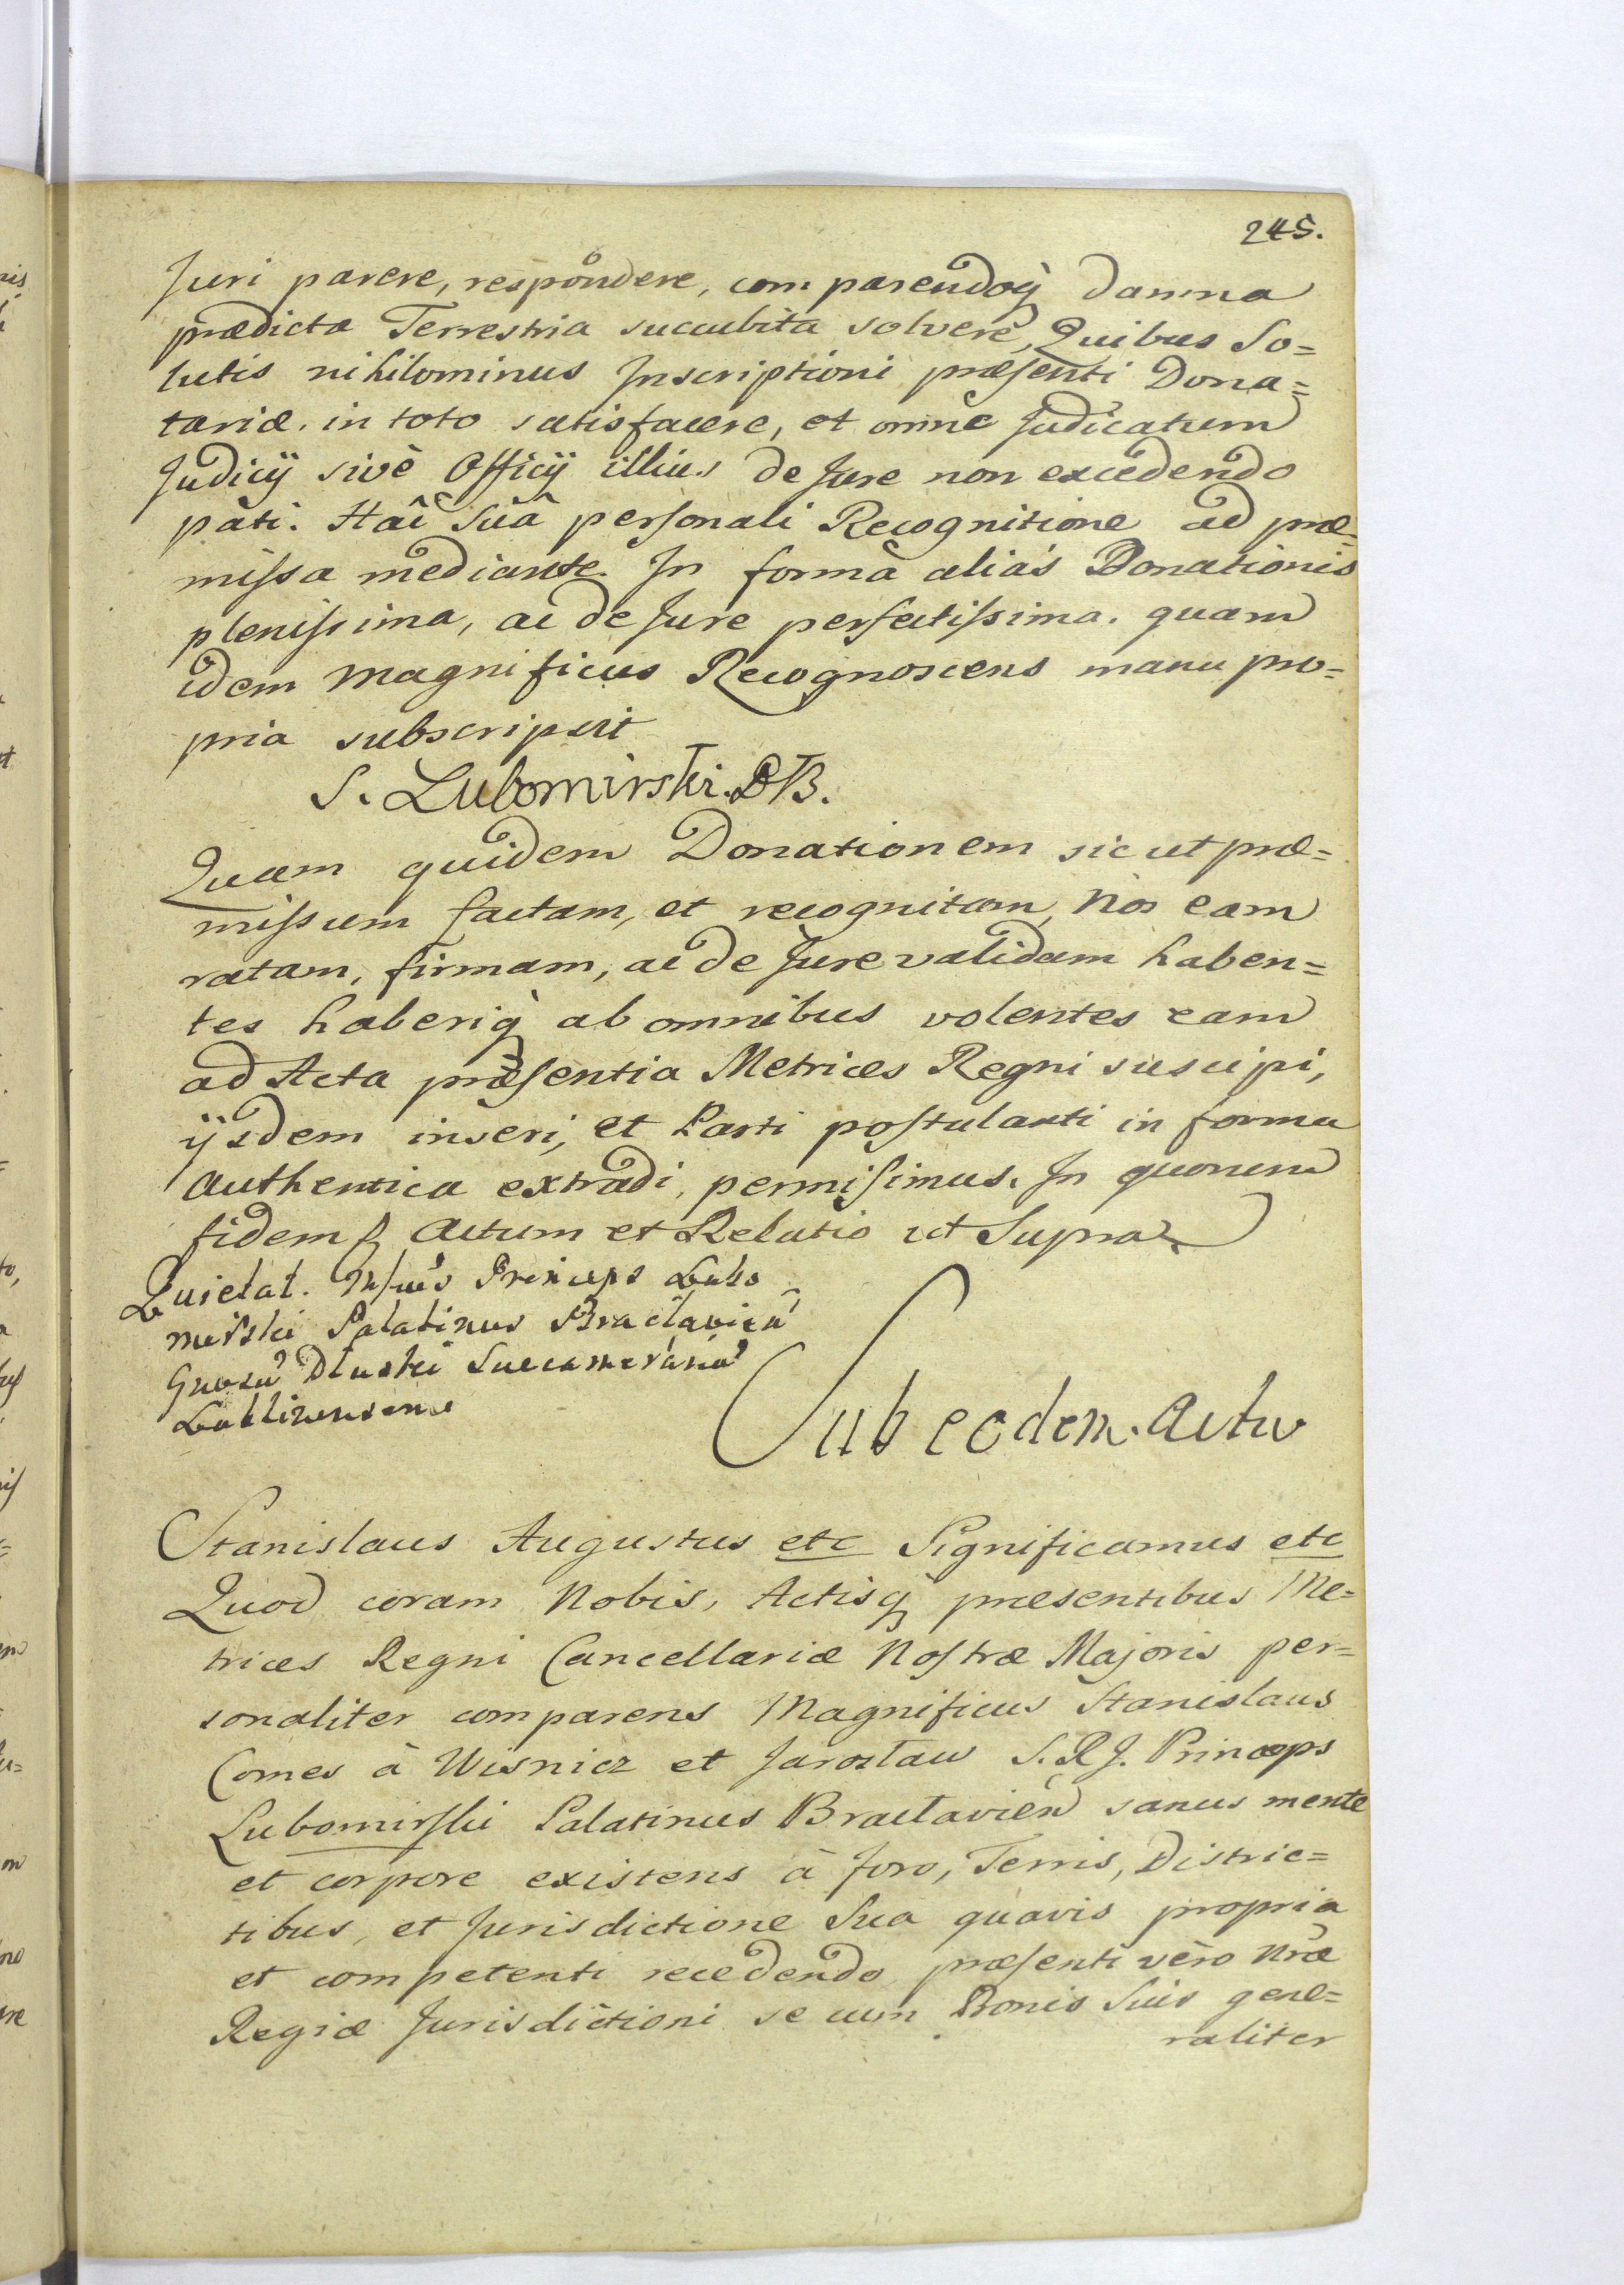 245.
Juri parere, respondere, comparendoq̀ damna
prædicta Terrestria succubita solvere, Quibus So=
lutis nihilominus Inscriptioni præsenti Dona=
tariæ in toto satisfacere, et omne Judicatum
Judicij sivè Officij illius de Jure non excedendo
pati. Hac Suâ personali Recognitione ad præ=
missa mediante. In formâ aliàs Donationis
plenissima, ac de Jure perfectissima. quam
idem Magnificus Recognoscens manu pro=
pria subscripsit
S. Lubomirski. W B.
Quam quidem Donationem sic ut præ=
missum factam, et recognitam, Nos eam
ratam, firmam, ac de Jure validam haben=
tes haberiq̀ ab omnibus volentes eam
ad Acta præsentia Metrices Regni suscipi,
ijsdem inseri, et Parti postulanti in forma
authentica extradi, permisimus. In quorum
fidem Actum et Relatio ut Supra
Quietat. Princeps Lubo
mirski Palatinus Braclavien
Gnoso Dłuski Succamerario
Lublinensem
Sub eodem Actu
Stanislaus Augustus etc Significamus etc
Quod coram Nobis, Actisq̀ præsentibus Me=
trices Regni Cancellariæ Nostræ Majoris per=
sonaliter comparens Magnificus Stanislaus
Comes à Wisnicz et Jarosław S. R. J. Princeps
Lubomirski Palatinus Bracłavien sanus mente
et corpore existens à foro, Terris, Distric=
tibus, et Jurisdictione Sua quavis propria
et competenti recedendo præsenti vèro Nræ
Regiæ Jurisdictioni se cum Bonis Suis gene=
raliter